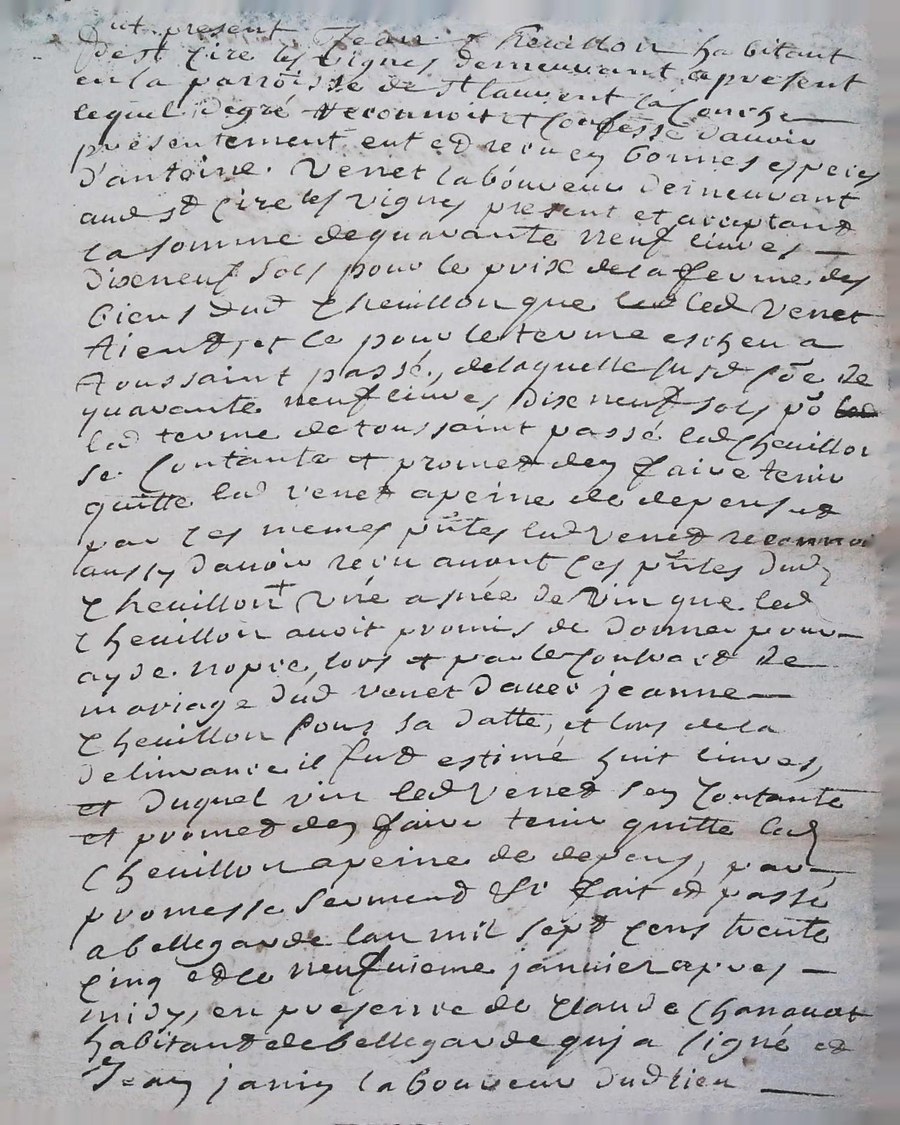 fut present Jean Cheuillon habitant
de st Cire les vignes demeurant apresent
en la parroisse de st laurent la Conche
lequel degré reconnoit et confesse d'auoir
présentement eut ed reçu en bonnes espeices
d'antoine Venet laboureur demeurant
aud st Cire les vignes present et acceptant
la somme de quarante neuf liures —
dixeneuf sols pour le prix de la ferme des
biens dud Cheuillon que led Venet
tient, et ce pour le terme escheu a
toussaint passé, de laquelle susd sõe de
quarante neuf liures dixneuf sols po
led terme de toussaint passé led Cheuillon
se Contante et promet den faire tenir
quitte led venet apeine de depens et
par les memes pñtes led Venet reconnoi
aussy d'auoir reçu auant ces pñtes dud
Cheuillon + Vne asnée de Vin que led
Cheuillon auoit promis de donner pour
ayde nopce lors et par le Contract de
mariage dud venet d'auec jeanne —
Cheuillon sous sa datte, et lors de la
deliurance il fud estimé huit liures,
et duquel vin led Venet sen Contante
et promet den faire tenir quitte led
Cheuillon apeine de depens, par
promesse serment &c fait et passé
a bellegarde lan mil sept cens trente
Cinq et le neufuieme januier apres —
midy, en presence de Claude Chanauat
habitant de bellegarde quj a signé et
Jean janin laboureur dud lieu —